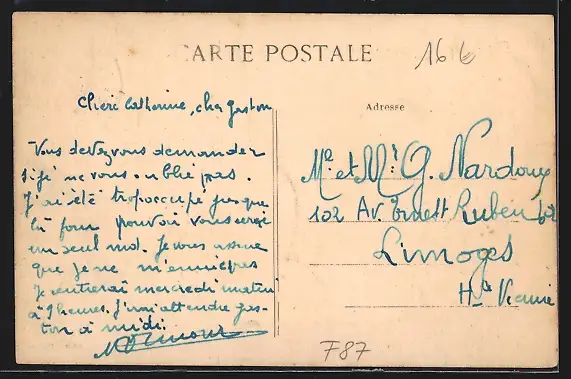 CARTE POSTALE
16 €
Chère Catherine, cher gaston
Adresse
Vous devez vous demander
si je ne vous oublié pas.
J'ai été trop occupé jusque
là pour pouvoir vous
un seul mot. Je vous assure
que je ne m'ennuie pas
Je rentrerai mercredi matin
à 9 heures. J'irai attendre gas-
ton à midi.
Me et Mr G. Nardoux
102 Av Ernest Ruben 102
Limoges
Hte Vienne
F87